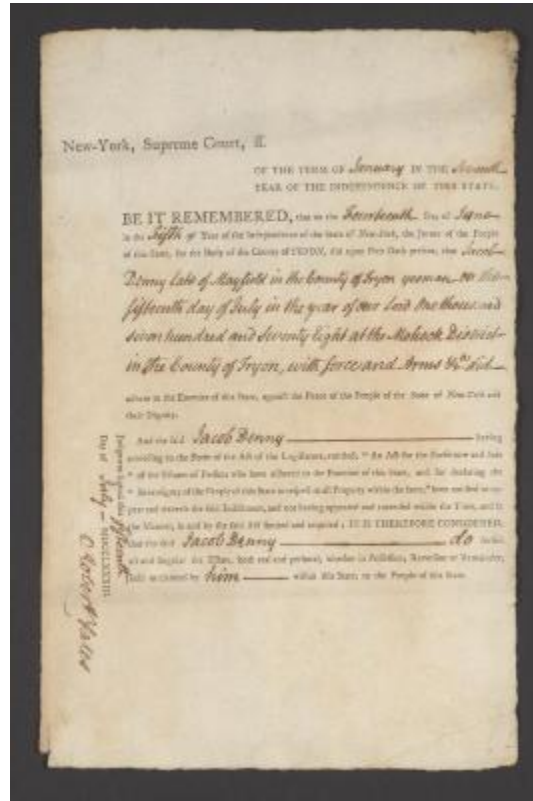 New-York, Supreme Court, ss.
OF THE TERM OF January IN THE Seventh
YEAR OF THE INDEPENDENCE OF THIS STATE.
BE IT REMEMBERED, that on the Fourteenth Day of June
in the Fifth Year of the Independence of the State of New-York, the Jurors of the People
of this State, for the Body of the County of TRYON, did upon their Oath present, that Jacob
Denny late of Mayfield in the County of Tryon yeoman on the
fifteenth day of July in the year of our Lord One thousand
seven hundred and seventy Eight at the Mohock District
in the County of Tryon, with force and Arms &ca. did
adhere to the Enemies of this State, against the Peace of the People of the State of New-York and
their Dignity.
And the said Jacob Denny having
according to the Form of the Act of the Legislature, entitled, "An Act for the Forfeiture and Sale
" of the Estates of Persons who have adhered to the Enemies of this State, and for declaring the
" Sovereignty of the People of this State in respect to all Property within the same," been notified to ap-
pear and traverse the said Indictment, and not having appeared and traversed within the Time, and in
the Manner, in and by the said Act limited and required; IT IS THEREFORE CONSIDERED,
that the said Jacob Denny do forfeit
all and singular the Estate, both real and personal, whether in Possession, Reversion or Remainder,
held or claimed by him within this State, to the People of this State.
Judgment signed this fifteenth
Day of July MDCCLXXXIII.
Robert Yates